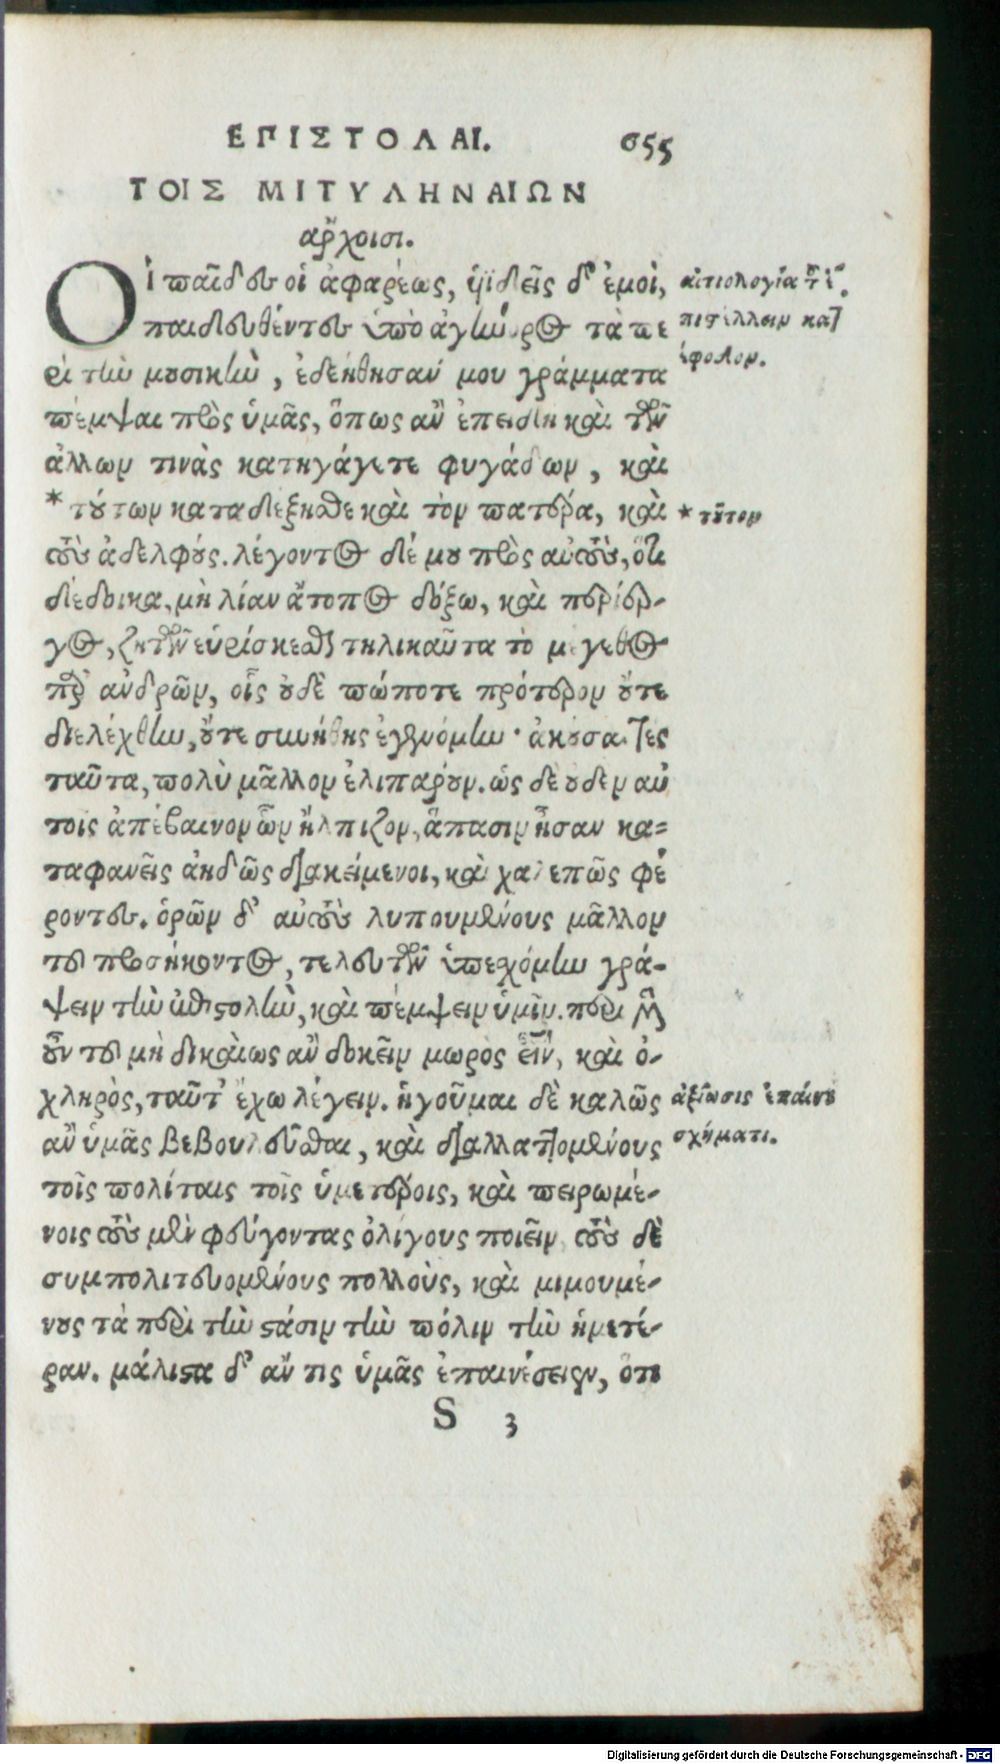 ΕΠΙΣΤΟΛΑΙ. σςς
ΤΟΙΣ ΜΙΤΥΛΗΝΑΙΩΝ
ἄρχοισι.
Οἱ παῖδες οἱ ἀφαρέως, ὑϊδεῖς δ' ἐμοὶ,
παιδευθέντες ὑπὸ ἀγήνορος τὰ πε
ρὶ τὴν μουσικὴν, ἐδεήθησαν μου γράμματα
πέμψαι πρὸς ὑμᾶς, ὅπως ἂν ἐπειδὴ καὶ τῶν
ἄλλων τινὰς κατηγάγετε φυγάδων, καὶ
* τούτων καταδέξησθε καὶ τὸν πατέρα, καὶ
τοὺς ἀδελφούς. λέγοντος δέ μου πρὸς αὐτοὺς, ὅτι
δέδοικα, μὴ λίαν ἄτοπος δόξω, καὶ περίερ-
γος, ζητῶν εὑρίσκεσθαι τηλικαῦτα τὸ μέγεθος
παρ' ἀνδρῶν, οἷς οὐδὲ πώποτε πρότερον οὔτε
διελέχθην, οὔτε συνήθης ἐγενόμην· ἀκούσαντες
ταῦτα, πολὺ μᾶλλον ἐλιπάρουν. ὡς δὲ οὐδὲν αὐ
τοῖς ἀπέβαινον ὧν ἤλπιζον, ἅπασιν ἦσαν κα=
ταφανεῖς ἀηδῶς διακείμενοι, καὶ χαλεπῶς φέ
ροντες. ὁρῶν δ' αὐτοὺς λυπουμένους μᾶλλον
τοῦ προσήκοντος, τελευτῶν ὑπεσχόμην γρά-
ψειν τὴν ἐπιστολὴν, καὶ πέμψειν ὑμῖν. περὶ μὲν
οὖν τοῦ μὴ δικαίως ἂν δοκεῖν μωρὸς εἶναι, καὶ ὀ-
χληρὸς, ταῦτ' ἔχω λέγειν. ἡγοῦμαι δὲ καλῶς
ἂν ὑμᾶς βεβουλεῦσθαι, καὶ διαλλαττομένους
τοῖς πολίταις τοῖς ὑμετέροις, καὶ πειρωμέ-
νοις τοὺς μὲν φεύγοντας ὀλίγους ποιεῖν, τοὺς δὲ
συμπολιτευομένους πολλοὺς, καὶ μιμουμέ-
νους τὰ περὶ τὴν στάσιν τὴν πόλιν τὴν ἡμετέ-
ραν. μάλιστα δ' ἄν τις ὑμᾶς ἐπαινέσειεν, ὅτι
S 3
αἰτιολογία τοῦ ἐ
πιστέλλειν κατ'
ἔφοδον.
* τοῦτον
ἀξίωσις ἐπαίνου
σχήματι.